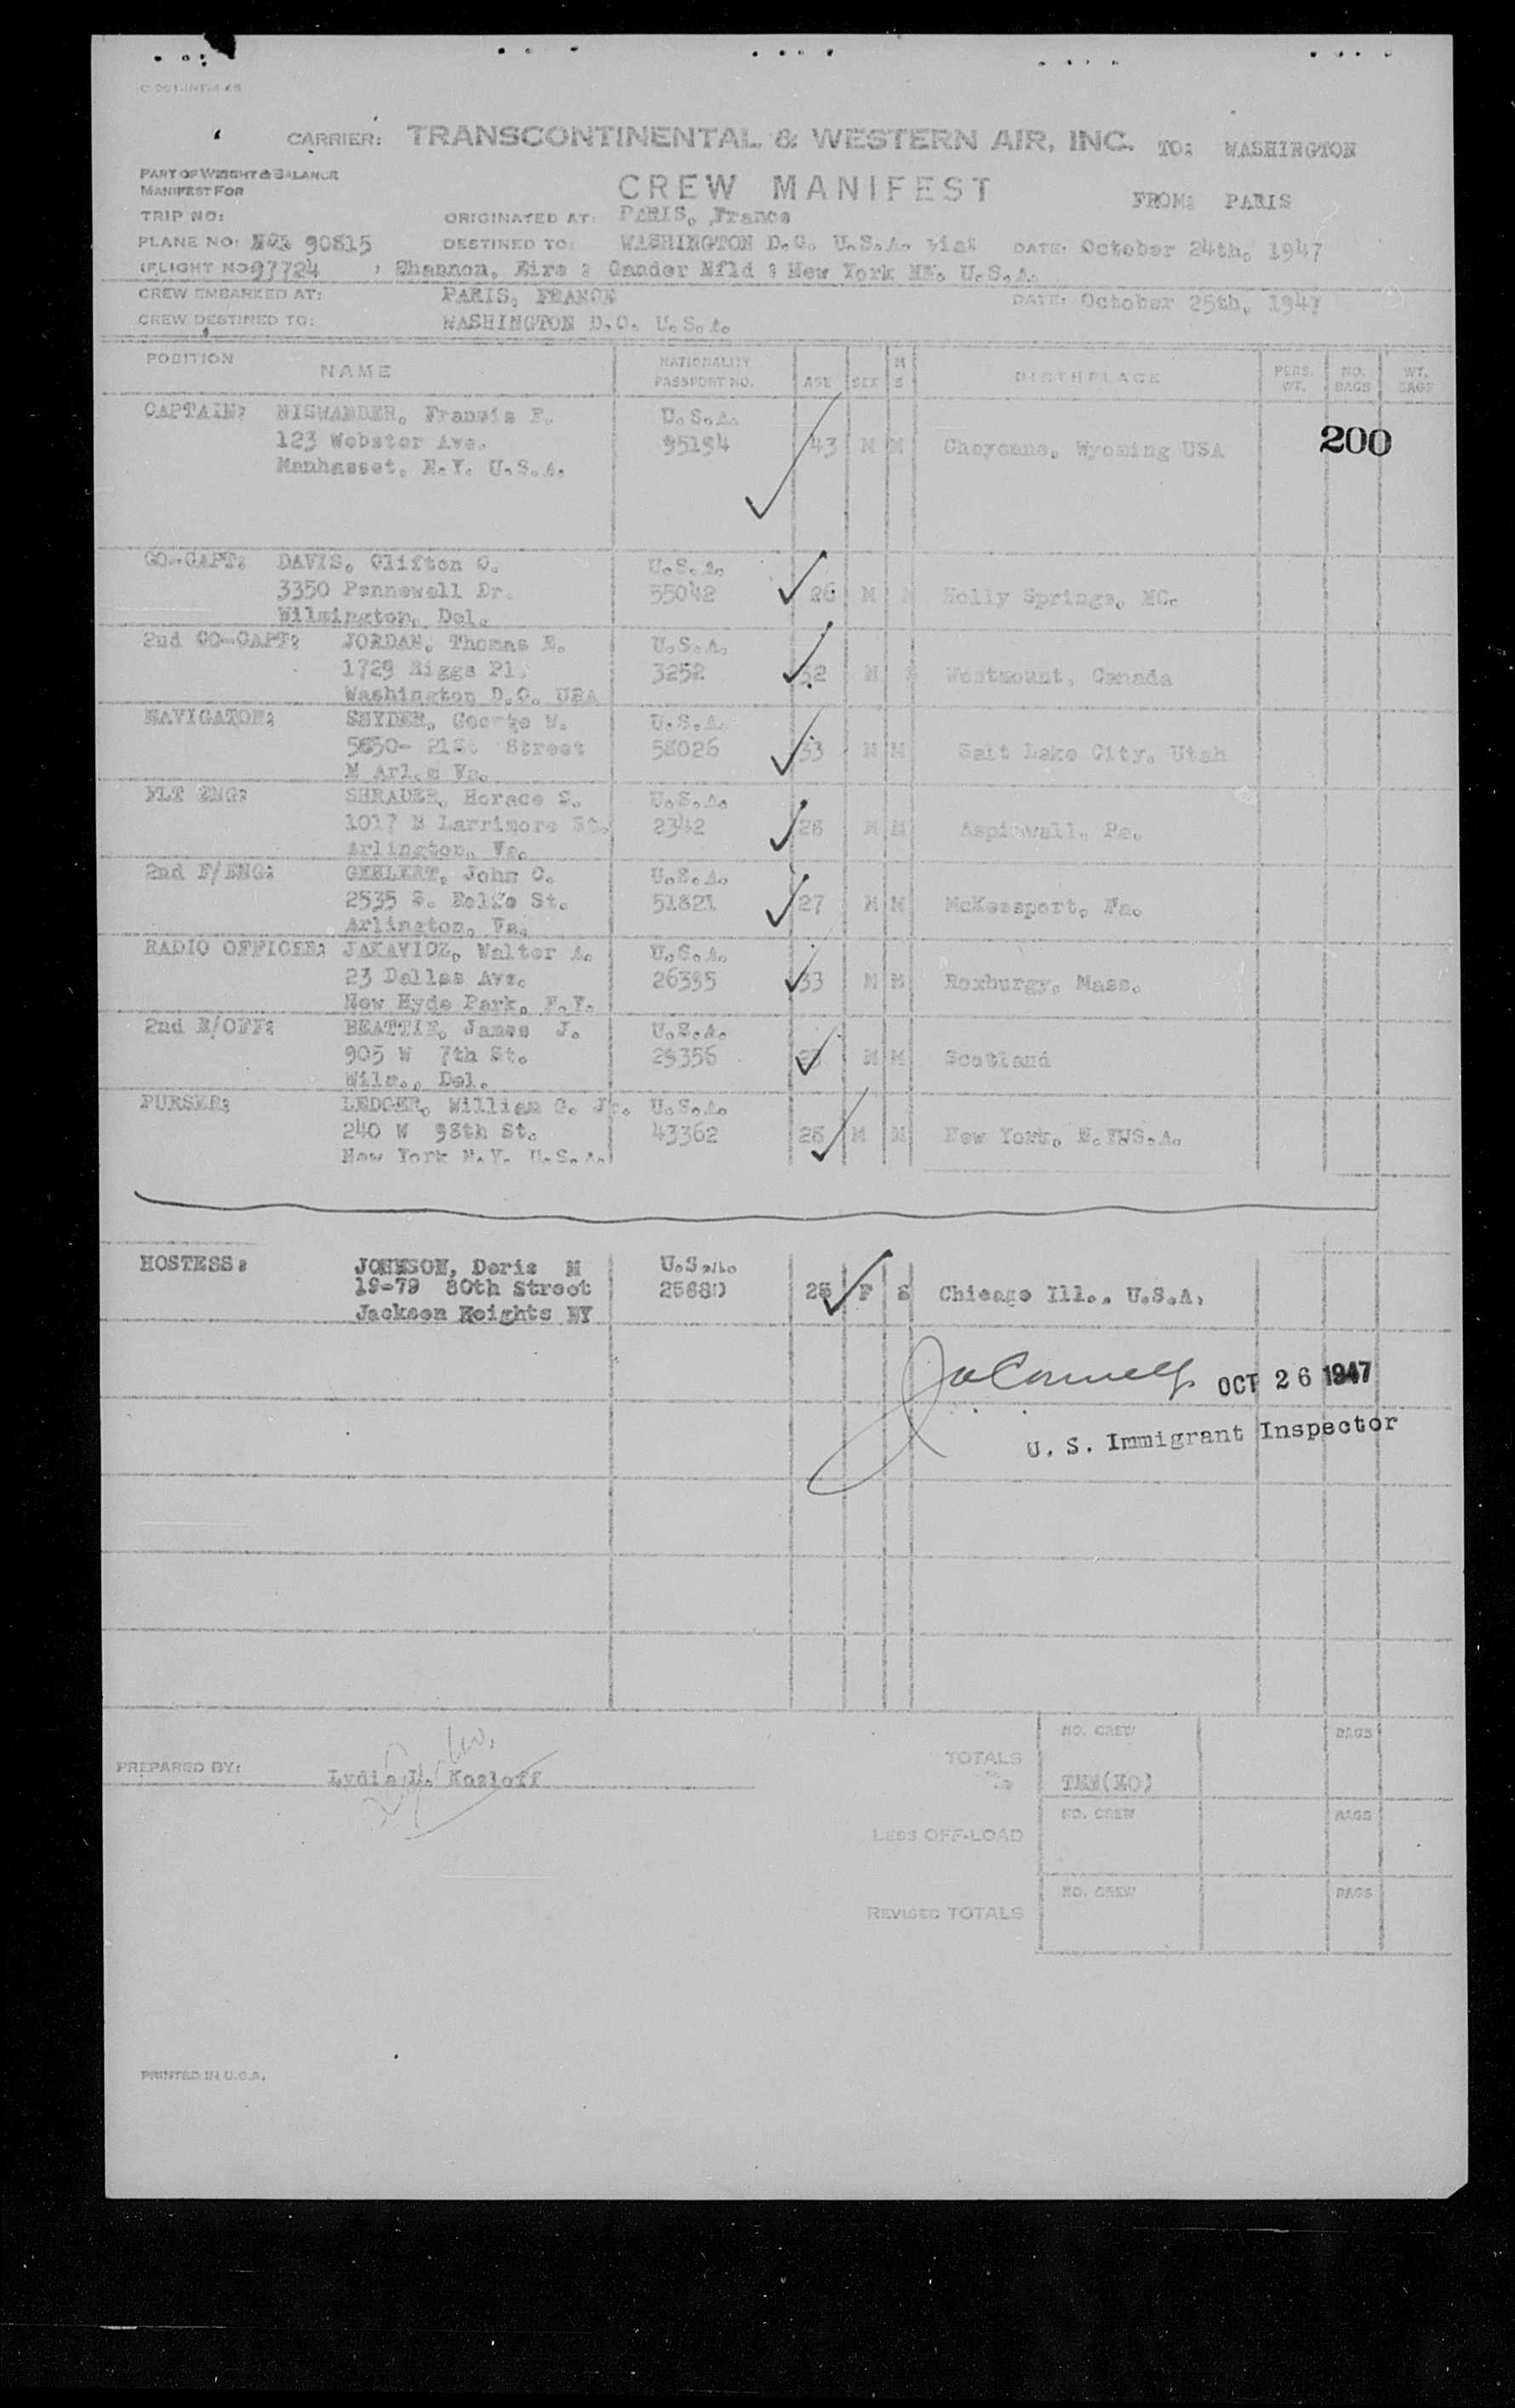 C-901-INT-4-46
CARRIER: TRANSCONTINENTAL & WESTERN AIR, INC. TO: WASHINGTON
PART OF WEIGHT & BALANCE
MANIFEST FOR
CREW MANIFEST FROM: PARIS
TRIP NO: ORIGINATED AT: PARIS, France
PLANE NO: 90815 DESTINED TO: WASHINGTON D.C. U.S.A. via: DATE: October 24th, 1947
(FLIGHT NO 97724 Shannon, Eire : Gander Nfld : New York U.S.A.
CREW EMBARKED AT: PARIS, FRANCE DATE: October 25th, 1947
CREW DESTINED TO: WASHINGTON D.C. U.S.A.
POSITION NAME NATIONALITY PASSPORT NO. AGE SEX M S BIRTHPLACE PERS. WT. NO. BAGS WT. BAGS
CAPTAIN: NISWANDER, Francis F. U.S.A.
123 Webster Ave. 95194 43 M M Cheyenne, Wyoming USA 200
Manhasset, N.Y. U.S.A.
CO-CAPT: DAVIS, Clifton O. U.S.A.
3350 Pennewell Dr. 55042 26 M Holly Springs, NC.
Wilmington, Del.
2nd CO-CAPT: JORDAN, Thomas E. U.S.A.
1729 Riggs Pl. 3252 32 M S Westmount, Canada
Washington D.C. USA
NAVIGATOR: SNYDER, George W. U.S.A.
5650- 21St Street 58026 33 M M Salt Lake City, Utah
N Arl. Va.
FLT ENG: SHRADER, Horace S. U.S.A.
1017 N Larrimore St. 2342 28 M M Aspinwall, Pa.
Arlington, Va.
2nd F/ENG: GEHLERT, John C. U.S.A.
2535 S. Rolfe St. 51821 27 M M McKeesport, Pa.
Arlington, Va.
RADIO OFFICER: JAKAVICZ, Walter A. U.S.A.
23 Dallas Ave. 26395 33 M M Roxburgy, Mass.
New Hyde Park, N.Y.
2nd R/OFF: BEATTIE, James J. U.S.A.
905 W 7th St. 29356 M M Scotland
Wilm., Del.
PURSER: LEDGER, William G. Jr. U.S.A.
240 W 98th St. 43362 28 M M New York, N.YUS.A.
New York N.Y. U.S.A.
HOSTESS: JOHNSON, Doris M U.S.A.
19-79 80th Street 25680 25 F S Chicago Ill., U.S.A.
Jackson Heights NY
OCT 26 1947
U. S. Immigrant Inspector
PREPARED BY: Lydia L. Kozloff
TOTALS NO. CREW BAGS
TEN(10)
LESS OFF-LOAD NO. CREW BAGS
REVISED TOTALS NO. CREW BAGS
PRINTED IN U.S.A.